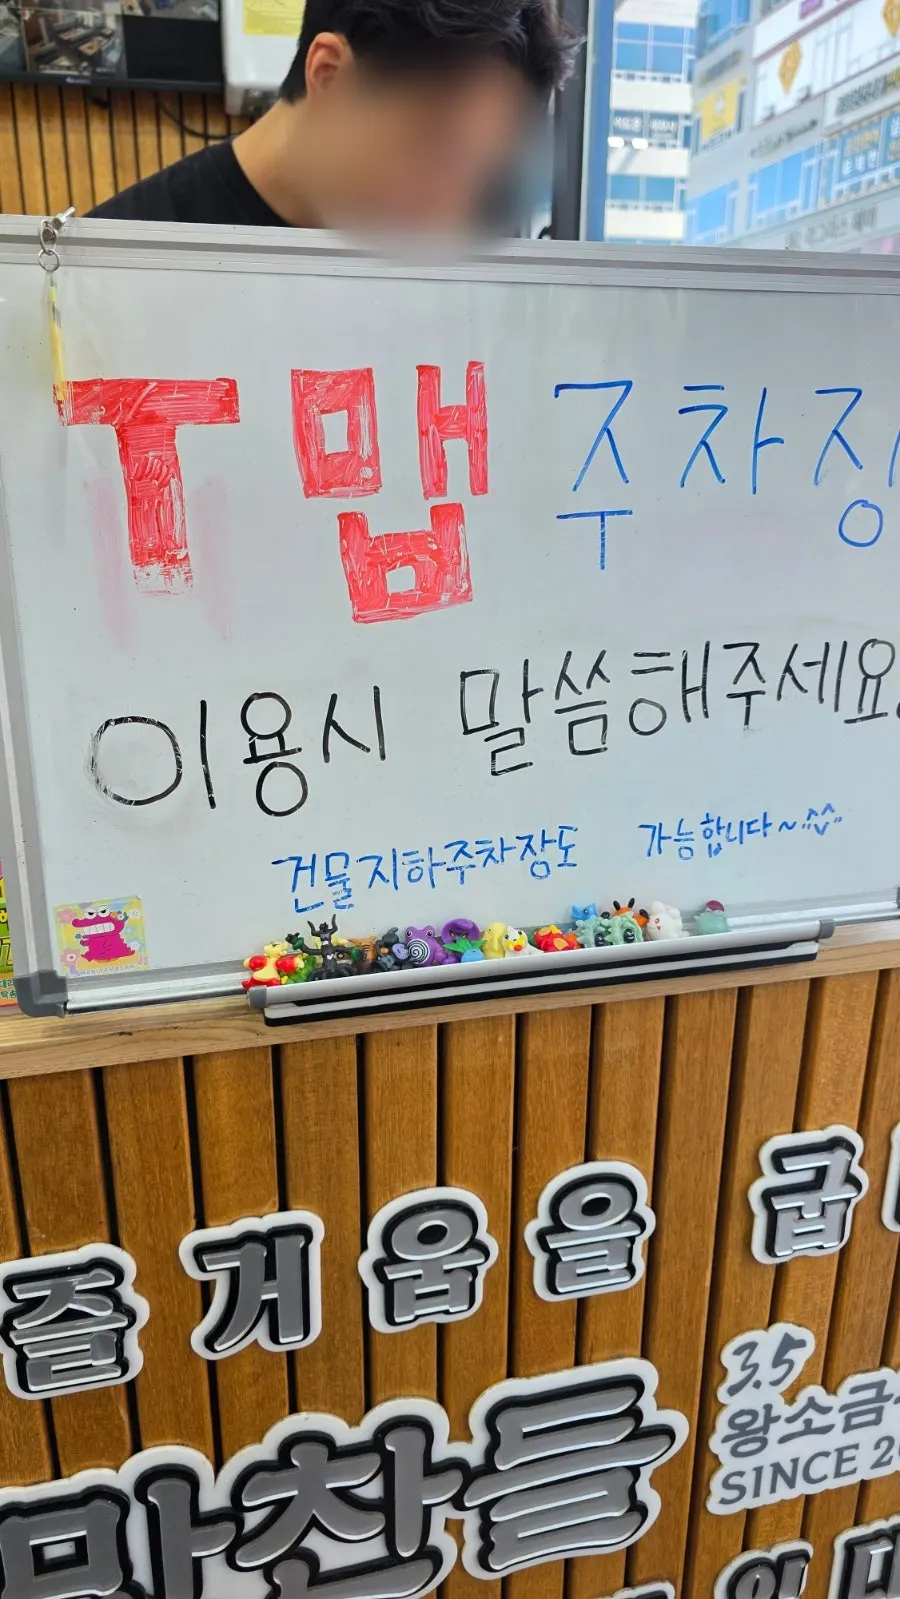 T맵 주차장
이용시 말씀해주세요
건물지하주차장도 가능합니다~^^
즐거움을 굽
만찬들
3.5
왕소금
SINCE 20